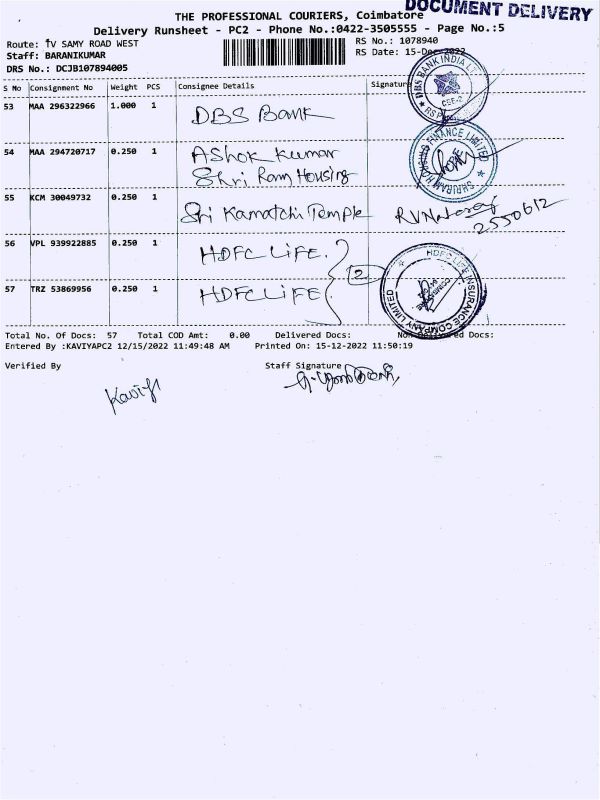 DOCUMENT DELIVERY
THE PROFESSIONAL COURIERS, Coimbatore
Delivery Runsheet - PC2 - Phone No.:0422-3505555 - Page No.:5
Route: TV SAMY ROAD WEST
RS No.: 1078940
Staff: BARANIKUMAR
RS Date: 15-Dec-2022
DRS No.: DCJB107894005
S No Consignment No Weight PCS Consignee Details Signature
53 MAA 296322966 1.000 1 DBS Bank
DBS BANK INDIA
54 MAA 294720717 0.250 1 Ashok Kumar
Shri Ram Housing
SHRIRAM HOUSING FINANCE LIMITED
55 KCM 30049732 0.250 1 Sri Kamatchi Temple
2550612
56 VPL 939922885 0.250 1 HDFC LIFE.
2
57 TRZ 53869956 0.250 1 HDFC LIFE
HDFC LIFE INSURANCE COMPANY LIMITED
Total No. Of Docs: 57 Total COD Amt: 0.00 Delivered Docs: Non-Delivered Docs:
Entered By :KAVIYAPC2 12/15/2022 11:49:48 AM Printed On: 15-12-2022 11:50:19
Verified By Staff Signature